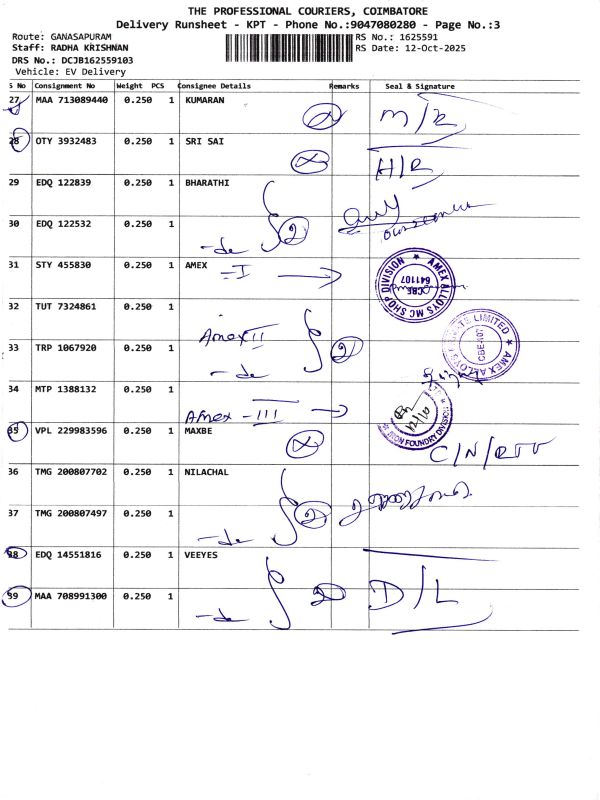 THE PROFESSIONAL COURIERS, COIMBATORE
Delivery Runsheet - KPT - Phone No.:9047080280 - Page No.:3
Route: GANASAPURAM
RS No.: 1625591
Staff: RADHA KRISHNAN
RS Date: 12-Oct-2025
DRS No.: DCJB162559103
Vehicle: EV Delivery
S No Consignment No Weight PCS Consignee Details Remarks Seal & Signature
27 MAA 713089440 0.250 1 KUMARAN M/R
28 OTY 3932483 0.250 1 SRI SAI H/R
29 EDQ 122839 0.250 1 BHARATHI
30 EDQ 122532 0.250 1 -do 2
31 STY 455830 0.250 1 AMEX
-I
AMEX ALLOYS MC SHOP DIVISION
CBE
641107
32 TUT 7324861 0.250 1
Amex II
33 TRP 1067920 0.250 1 2
-do
AMEX ALLOYS PRIVATE LIMITED
34 MTP 1388132 0.250 1
Amex - III
12/10
IRON FOUNDRY DIVISION
35 VPL 229983596 0.250 1 MAXBE
C/N/RTT
36 TMG 200807702 0.250 1 NILACHAL
37 TMG 200807497 0.250 1 2
-do
38 EDQ 14551816 0.250 1 VEEYES
39 MAA 708991300 0.250 1 2 D/L
-do